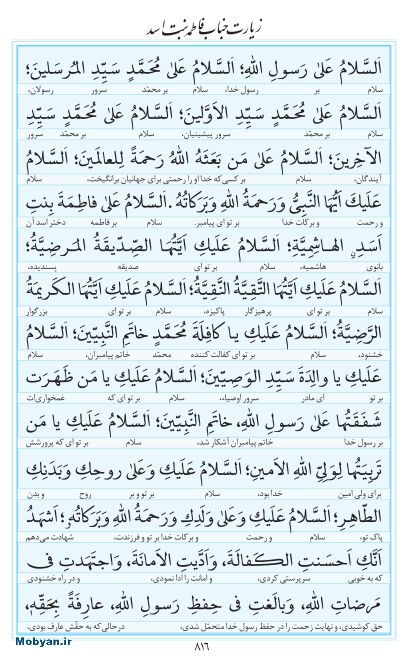 زیارت جناب فاطمه بنت اسد
اَلسَّلامُ عَلیٰ رَسولِ اللهِ؛ اَلسَّلامُ عَلیٰ مُحَمَّدٍ سَیِّدِ المُرسَلینَ؛
سلام بر رسول خدا، سلام بر محمّد سرور رسولان،
اَلسَّلامُ عَلیٰ مُحَمَّدٍ سَیِّدِ الاَوَّلینَ؛ اَلسَّلامُ عَلیٰ مُحَمَّدٍ سَیِّدِ
سلام بر محمّد سرور پیشینیان، سلام بر محمّد سرور
الآخِرینَ؛ اَلسَّلامُ عَلیٰ مَن بَعَثَهُ اللهُ رَحمَةً لِلعالَمینَ؛ اَلسَّلامُ
آیندگان، سلام بر کسی‌که خدا او را رحمتی برای جهانیان برانگیخت، سلام
عَلَیكَ اَیُّهَا النَّبِیُّ وَرَحمَةُ اللهِ وَبَرَکاتُهُ. اَلسَّلامُ عَلیٰ فاطِمَةَ بِنتِ
و رحمت و برکات خدا بر تو ای پیامبر. سلام بر فاطمه دختر اسد آن
اَسَدٍ الهاشِمِیَّةِ؛ اَلسَّلامُ عَلَیكِ اَیَّتُهَا الصِّدّیقَةُ المَرضِیَّةُ؛
بانوی هاشمیه، سلام بر تو ای صدیقه پسندیده،
اَلسَّلامُ عَلَیكِ اَیَّتُهَا التَّقِیَّةُ النَّقِیَّةُ؛ اَلسَّلامُ عَلَیكِ اَیَّتُهَا الکَریمَةُ
سلام بر تو ای پرهیزگار پاکیزه، سلام بر تو ای بزرگوار
الرَّضِیَّةُ؛ اَلسَّلامُ عَلَیكِ یا کافِلَةَ مُحَمَّدٍ خاتَمِ النَّبِیّینَ؛ اَلسَّلامُ
خشنود، سلام بر تو ای کفالت کننده محمّد خاتم پیامبران، سلام
عَلَیكِ یا والِدَةَ سَیِّدِ الوَصِیّینَ؛ اَلسَّلامُ عَلَیكِ یا مَن ظَهَرَت
بر تو ای مادر سرور اوصیاء، سلام بر تو ای که غمخواری‌ات
شَفَقَتُها عَلیٰ رَسولِ اللهِ، خاتَمِ النَّبِیّینَ؛ اَلسَّلامُ عَلَیكِ یا مَن
بر رسول خدا خاتم پیامبران آشکار شد، سلام بر تو ای که پرورشش
تَربِیَتُها لِوَلِیِّ اللهِ الاَمینِ؛ اَلسَّلامُ عَلَیكِ وَعَلیٰ روحِكِ وَبَدَنِكِ
برای ولی امین خدا بود، سلام بر تو و بر روح و بدن
الطّاهِرِ؛ اَلسَّلامُ عَلَیكِ وَعَلیٰ وَلَدِكِ وَرَحمَةُ اللهِ وَبَرَکاتُهُ؛ اَشهَدُ
پاک تو، سلام و رحمت و برکات خدا بر تو و فرزندت، شهادت می‌دهم
اَنَّكِ اَحسَنتِ الکَفالَةَ، وَاَدَّیتِ الاَمانَةَ، وَاجتَهَدتِ فی
که به خوبی سرپرستی کردی، و امانت را ادا نمودی، و در راه خشنودی
مَرضاتِ اللهِ، وَبالَغتِ فی حِفظِ رَسولِ اللهِ، عارِفَةً بِحَقِّهِ،
حق کوشیدی، و نهایت زحمت را در حفظ رسول خدا متحمّل شدی، در حالی که به حقّش عارف بودی،
۸۱۶
Mobyan.ir